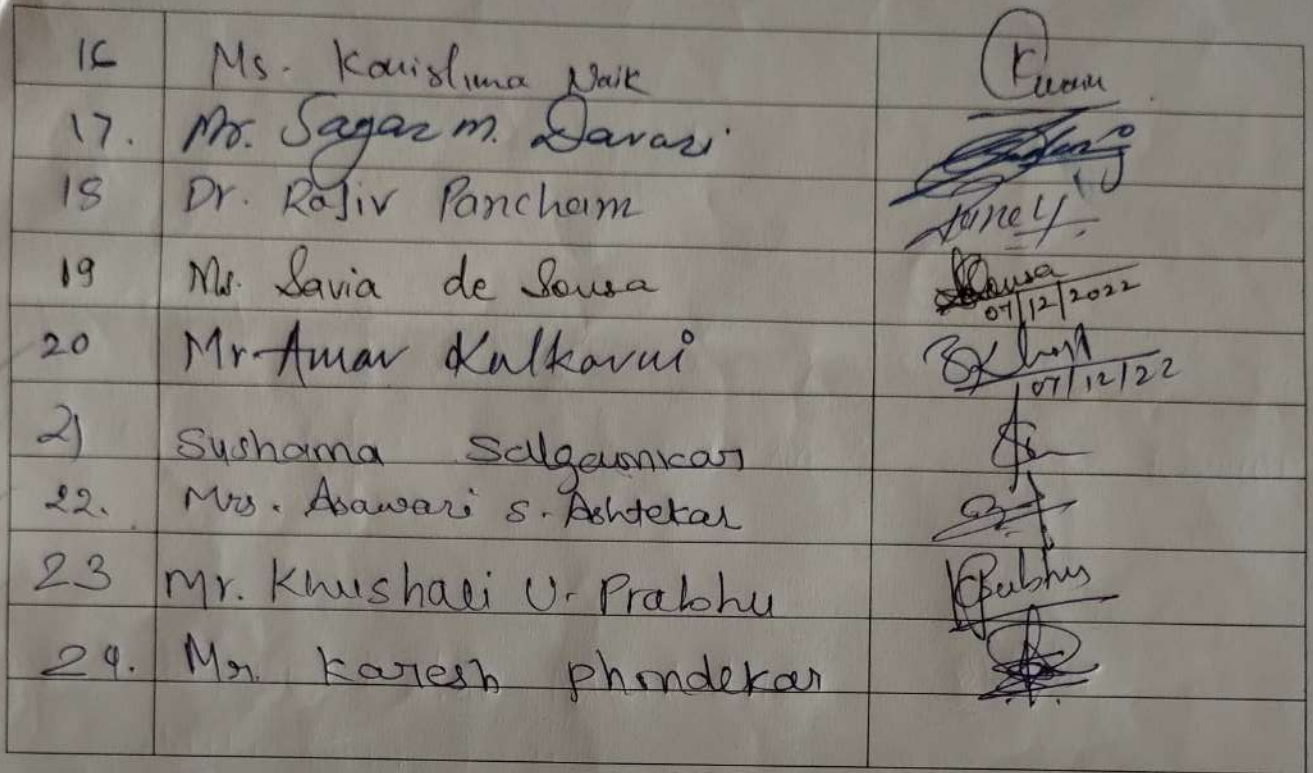 16 Ms. Karishma Naik
17. Mr. Sagar m. Davari
18 Dr. Rajiv Pancham
19 Ms. Savia de Sousa Sousa
07/12/2022
20 Mr Amar Kulkarni
07/12/22
21 Sushama Salgaonkar
22. Mrs. Asawari S. Ashtekar
23 Mr. Khushali U. Prabhu KPrabhu
24. Mr. Karesh Phondekar